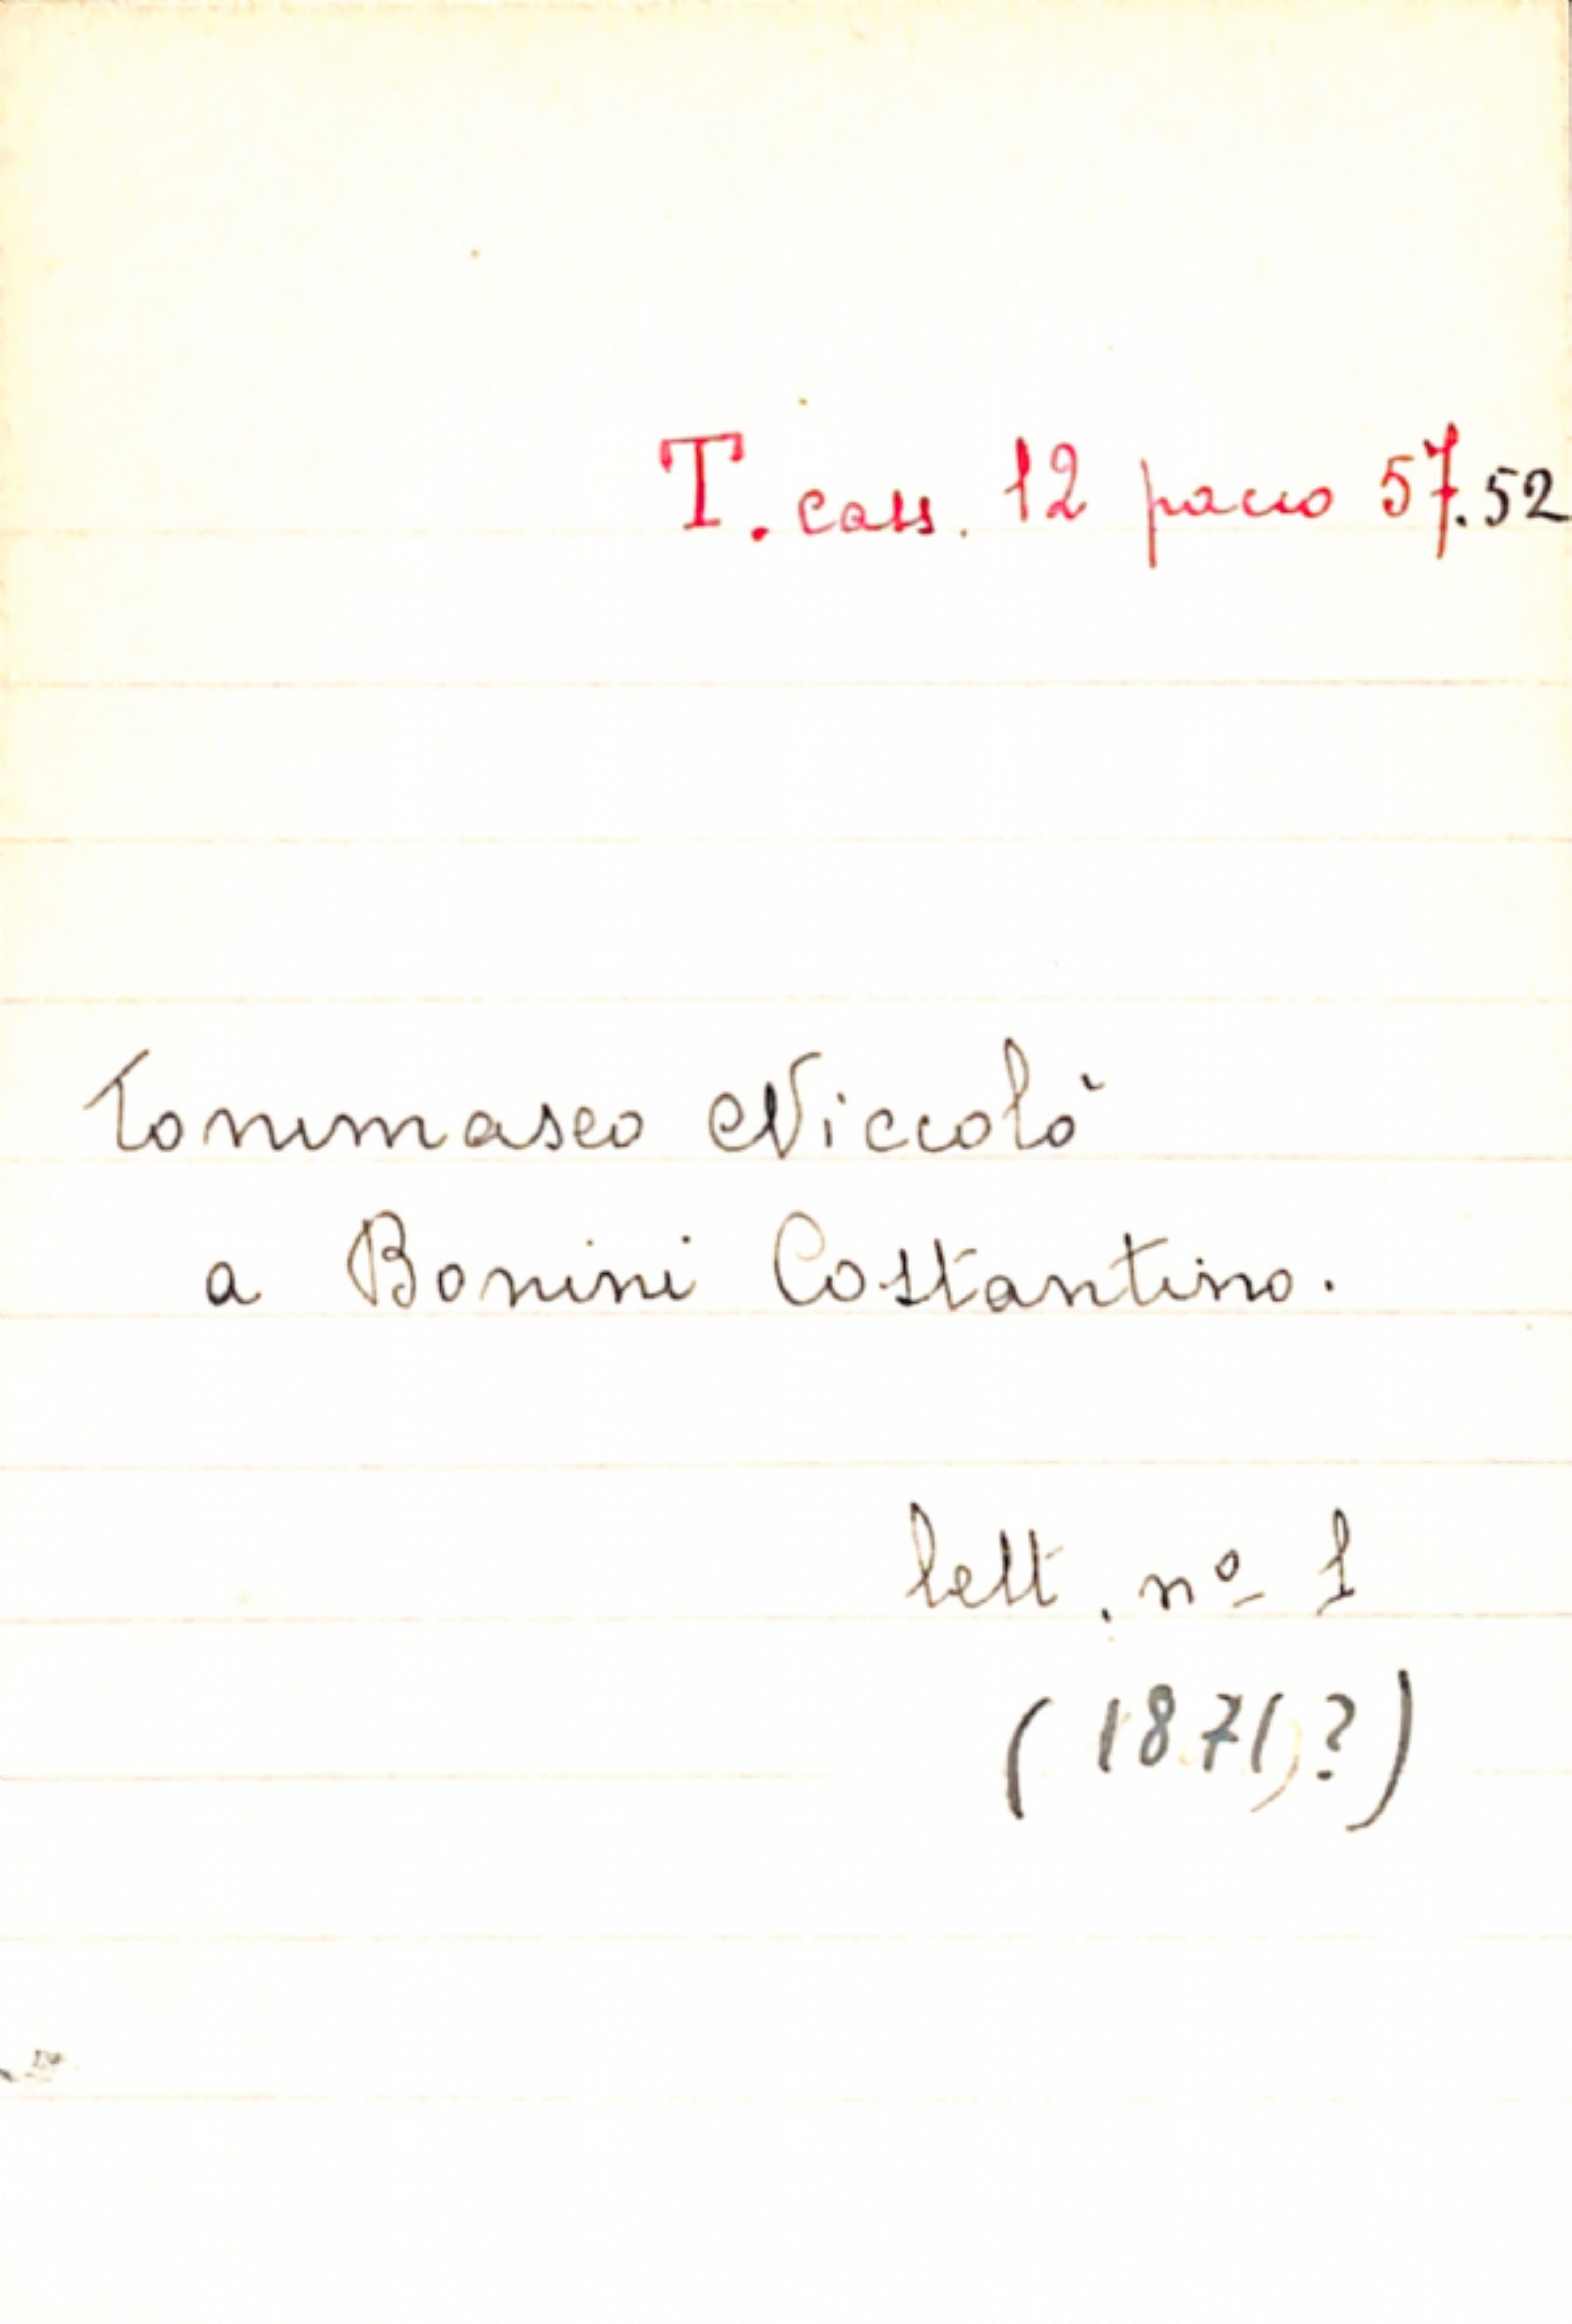 T. cass. 12 pacco 57.52
Tommaseo Niccolò
a Bonini Costantino.
lett. nº 1
(1871?)